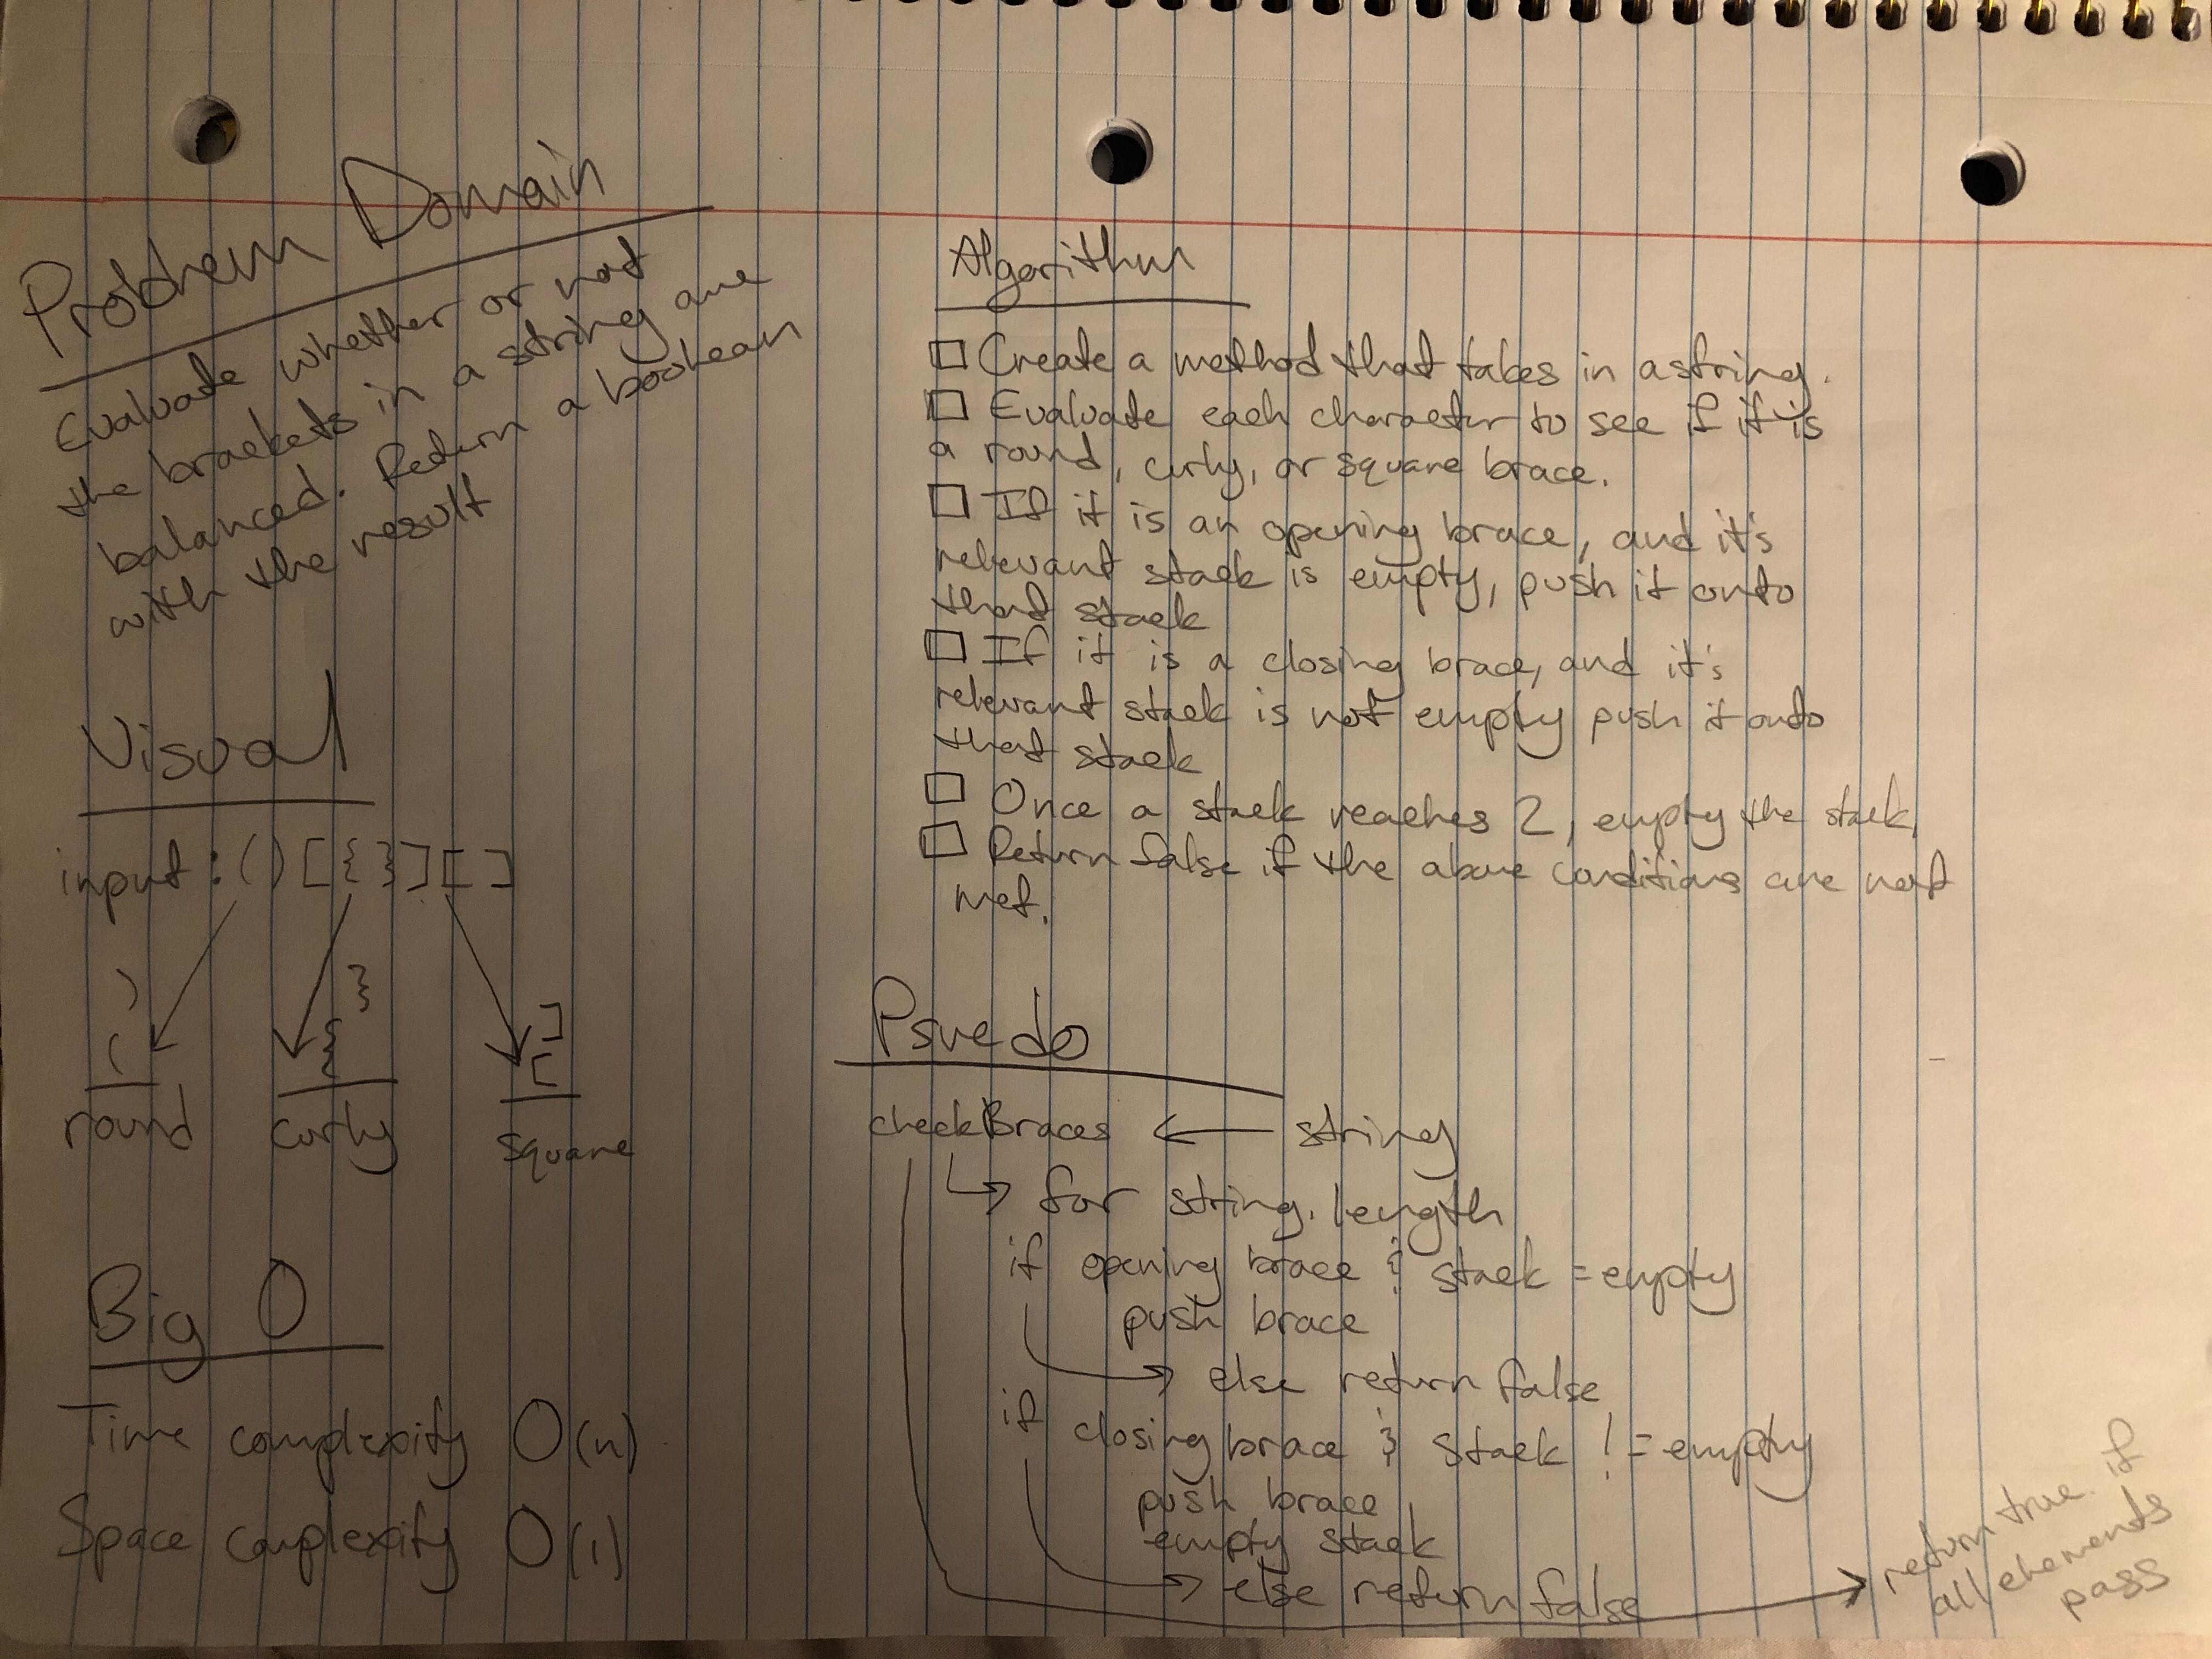 Problem Domain
Evaluate whether or not
the brackets in a string are
balanced. Return a boolean
with the result
Visual
input: ()[{}][]
) } ]
( { [
round curly square
Big O
Time complexity O(n)
Space complexity O(1)
Algorithm
Create a method that takes in a string.
Evaluate each character to see if it is
a round, curly, or square brace.
If it is an opening brace, and it's
relevant stack is empty, push it onto
that stack
If it is a closing brace, and it's
relevant stack is not empty push it onto
that stack
Once a stack reaches 2, empty the stack.
Return false if the above conditions are not
met.
Psuedo
checkBraces ← string
↳ for string.length
if opening brace & stack = empty
push brace
→ else return false
if closing brace & stack != empty
push brace
empty stack
→ else return false
→ return true if
all elements
pass